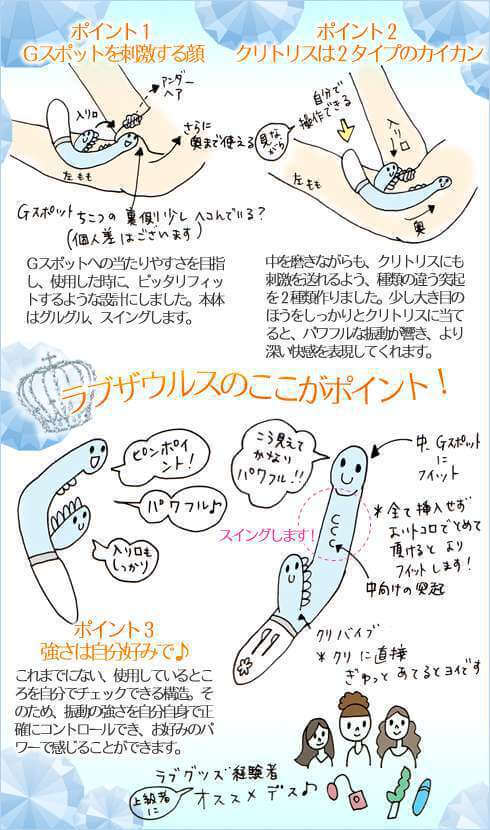 ポイント1
Gスポットを刺激する顔
アンダーヘア
入り口
さらに
奥まで使える
左もも
Gスポット ちこつの裏側少しヘコんでいる?
(個人差はございます)
Gスポットへの当たりやすさを目指
し、使用した時に、ピッタリフィッ
トするような設計にしました。本体
はグルグル、スイングします。
ポイント2
クリトリスは2タイプのカイカン
自分で
操作できる
見ながら
入り口
左もも
奥
中を磨きながらも、クリトリスにも
刺激を送れるよう、種類の違う突起
を2種類作りました。少し大き目の
ほうをしっかりとクリトリスに当て
ると、パワフルな振動が響き、より
深い快感を表現してくれます。
ラブザウルスのここがポイント!
ピンポイ
ント!
パワフル♪
入り口も
しっかり
こう見えて
かなり
パワフル!!
中、Gスポット
に
フィット
スイングします!
*全て挿入せず
よいトコロでとめて
頂けると より
フィットします!
中向けの突起
クリバイブ
*クリに直接
ぎゅっと あてるとヨイです
ポイント3
強さは自分好みで♪
これまでにない、使用しているとこ
ろを自分でチェックできる構造。そ
のため、振動の強さを自分自身で正
確にコントロールでき、お好みのパ
ワーで感じることができます。
ラブグッズ経験者
上級者に
オススメデス♪